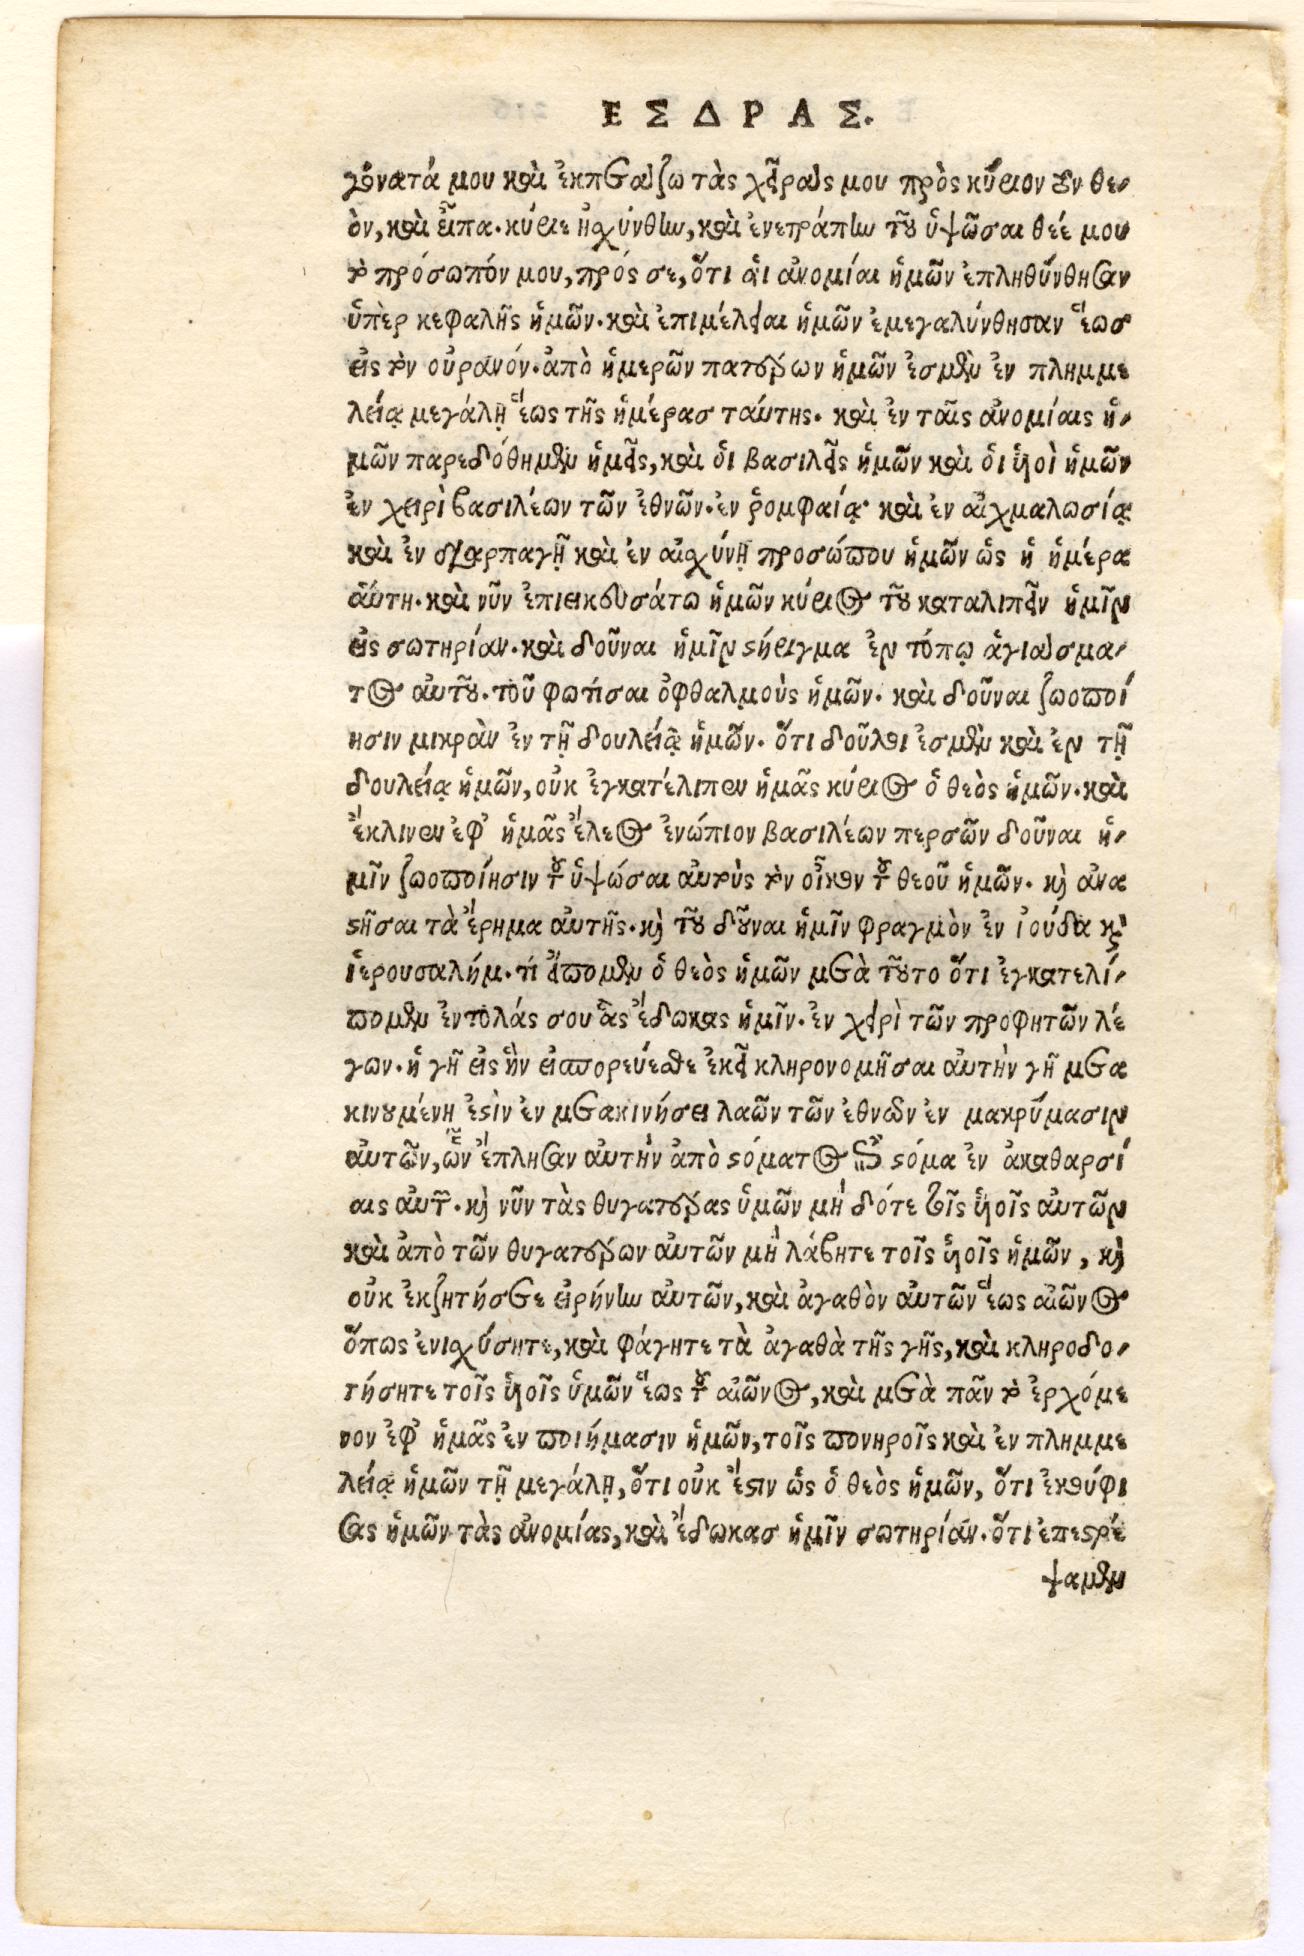 ΕΣΔΡΑΣ.
γόνατά μου καὶ ἐκπετάζω τὰς χεῖρας μου πρὸς κύριον τὸν θε-
ὸν, καὶ εἶπα. κύριε ᾐσχύνθην, καὶ ἐνετράπην τοῦ ὑψῶσαι θεέ μου
τὸ πρόσωπόν μου, πρός σε, ὅτι αἱ ἀνομίαι ἡμῶν ἐπληθύνθησαν
ὑπὲρ κεφαλῆς ἡμῶν. καὶ ἐπιμέλειαι ἡμῶν ἐμεγαλύνθησαν ἕωσ
εἰς τὸν οὐρανόν. ἀπὸ ἡμερῶν πατέρων ἡμῶν ἐσμὲν ἐν πλημμε
λείᾳ μεγάλῃ ἕως τῆς ἡμέρασ ταύτης. καὶ ἐν ταῖς ἀνομίαις ἡ-
μῶν παρεδόθημεν ἡμεῖς, καὶ ὁι βασιλεῖς ἡμῶν καὶ ὁι ὑιοὶ ἡμῶν
ἐν χειρὶ βασιλέων τῶν ἐθνῶν. ἐν ῥομφαίᾳ· καὶ ἐν αἰχμαλωσίᾳ
καὶ ἐν διαρπαγῇ καὶ ἐν αἰσχύνῃ προσώπου ἡμῶν ὡς ἡ ἡμέρα
ἅυτη. καὶ νῦν ἐπιεικευσάτω ἡμῶν κύριος τοῦ καταλιπεῖν ἡμῖν
εἰς σωτηρίαν. καὶ δοῦναι ἡμῖν στήριγμα ἐν τόπῳ ἁγιάσμα-
τος αὐτοῦ. τοῦ φωτίσαι ὀφθαλμοὺς ἡμῶν. καὶ δοῦναι ζωοποί
ησιν μικρὰν ἐν τῇ δουλείᾳ ἡμῶν. ὅτι δοῦλοι ἐσμὲν καὶ ἐν τῇ
δουλείᾳ ἡμῶν, οὐκ ἐγκατέλιπεν ἡμᾶς κύριος ὁ θεὸς ἡμῶν. καὶ
ἔκλινεν ἐφ’ ἡμᾶς ἔλεος ἐνώπιον βασιλέων περσῶν δοῦναι ἡ-
μῖν ζωοποίησιν τοῦ ὑψώσαι αὐτοὺς τὸν οἶκον τοῦ θεοῦ ἡμῶν. καὶ ἀνα
στῆσαι τὰ ἔρημα αὐτῆς. καὶ τοῦ δοῦναι ἡμῖν φραγμὸν ἐν ἰούδα καὶ
ἱερουσαλήμ. τί εἴπομεν ὁ θεὸς ἡμῶν μετὰ τοῦτο ὅτι ἐγκατελί-
πομεν ἐντολάς σου ἃς ἔδωκας ἡμῖν. ἐν χειρὶ τῶν προφητῶν λέ
γων. ἡ γῆ εἰς ἣν εἰσπορεύεσθε ἐκεῖ κληρονομῆσαι αὐτὴν γῆ μετα
κινουμένη ἐστὶν ἐν μετακινήσει λαῶν τῶν ἐθνῶν ἐν μακρύμασιν
αὐτῶν, ὧν ἔπλησαν αὐτὴν ἀπὸ στόματος ἐπὶ στόμα ἐν ἀκαθαρσί
αις αὐτῶν. καὶ νῦν τὰς θυγατέρας ὑμῶν μὴ δότε τοῖς ὑιοῖς αὐτῶν
καὶ ἀπὸ τῶν θυγατέρων αὐτῶν μὴ λάβητε τοῖς ὑιοῖς ἡμῶν, καὶ
οὐκ ἐκζητήσετε εἰρήνην αὐτῶν, καὶ ἀγαθὸν αὐτῶν ἕως αἰῶνος
ὅπως ἐνισχύσητε, καὶ φάγητε τὰ ἀγαθὰ τῆς γῆς, καὶ κληροδο-
τήσητε τοῖς ὑιοῖς ὑμῶν ἕως τοῦ αἰῶνος, καὶ μετὰ πᾶν τὸ ἐρχόμε
νον ἐφ’ ἡμᾶς ἐν ποιήμασιν ἡμῶν, τοῖς πονηροῖς καὶ ἐν πλημμε
λείᾳ ἡμῶν τῇ μεγάλῃ, ὅτι οὐκ ἔστιν ὡς ὁ θεὸς ἡμῶν, ὅτι ἐκούφι
σας ἡμῶν τὰς ἀνομίας, καὶ ἔδωκασ ἡμῖν σωτηρίαν. ὅτι ἐπεστρέ
ψαμεν